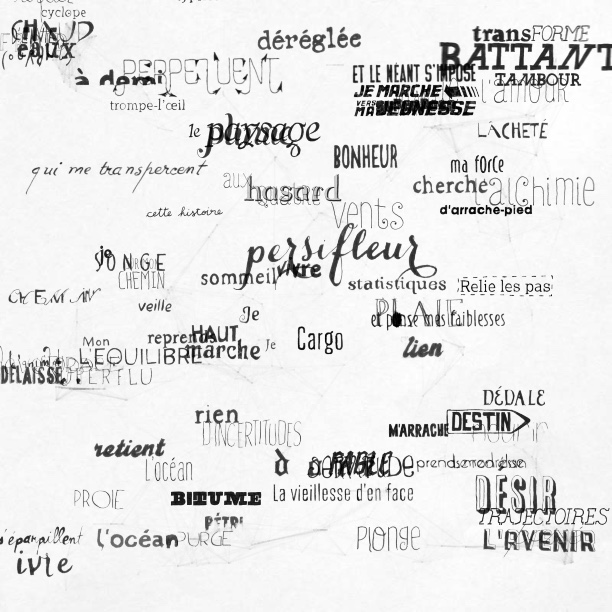 cyclope
CHAUD
eaux
déréglée
transFORME
BATTANT
PERPETUENT
à demi
ET LE NÉANT S'IMPOSE
TAMBOUR
JE MARCHE
l'amour
trompe-l'œil
JEUNESSE
le paysage
LACHETÉ
BONHEUR
ma force
qui me transpercent
aux
hasard
cherche
l'alchimie
cette histoire
vents
d'arrache-pied
persifleur
SONGE
CHEMIN
sommeil
vivre
statistiques
Relie les pas
veille
Je
PLAIE
et panse mes faiblesses
Mon
reprends
HAUT
L'EQUILIBRE
marche
Je
Cargo
lien
DÉLAISSÉ
SUPERFLU
DÉDALE
rien
D'INCERTITUDES
M'ARRACHE
DESTIN
retient
L'océan
à
prends
PROIE
BITUME
La vieillesse d'en face
DÉSIR
TRAJECTOIRES
PÉTRI
s'éparpillent
L'océan
PURGE
Plonge
L'AVENIR
ivre